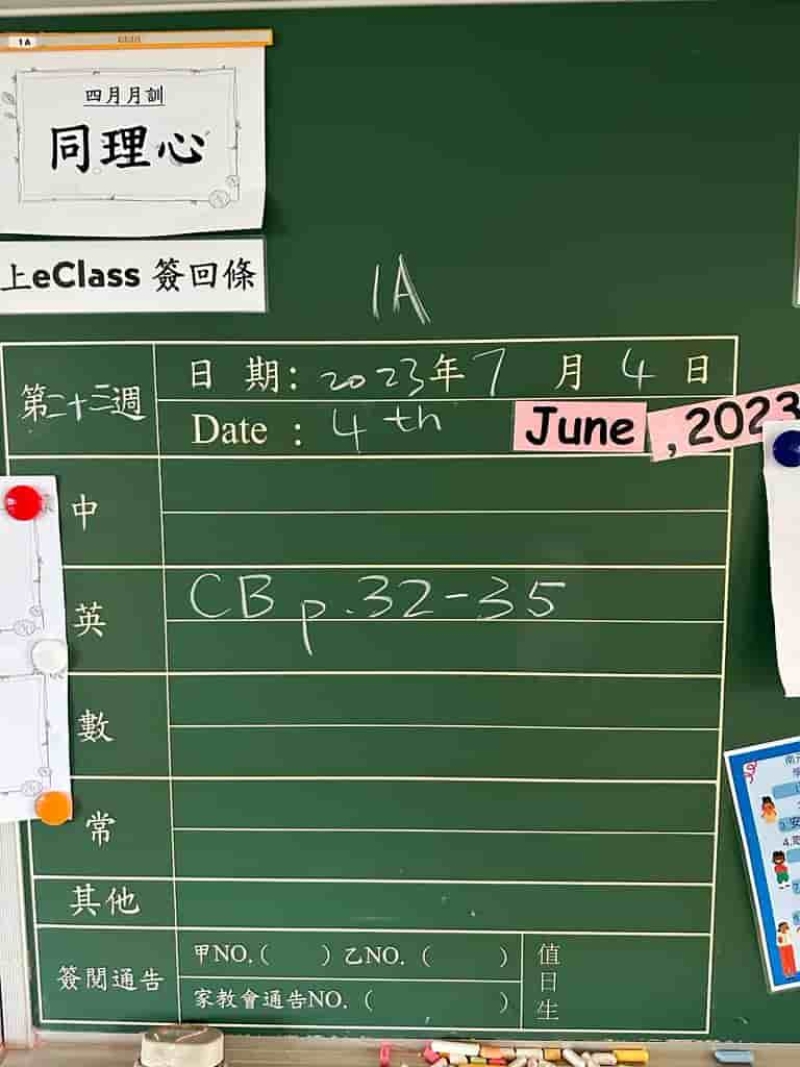 1A
四月月訓
同理心
上eClass 簽回條
1A
第二十三週
日 期: 2023年7 月 4 日
Date : 4 th June ,2023
中
英
CB p.32-35
數
常
其他
簽閱通告
甲NO.( ) 乙NO. ( )
家教會通告NO. ( )
值日生